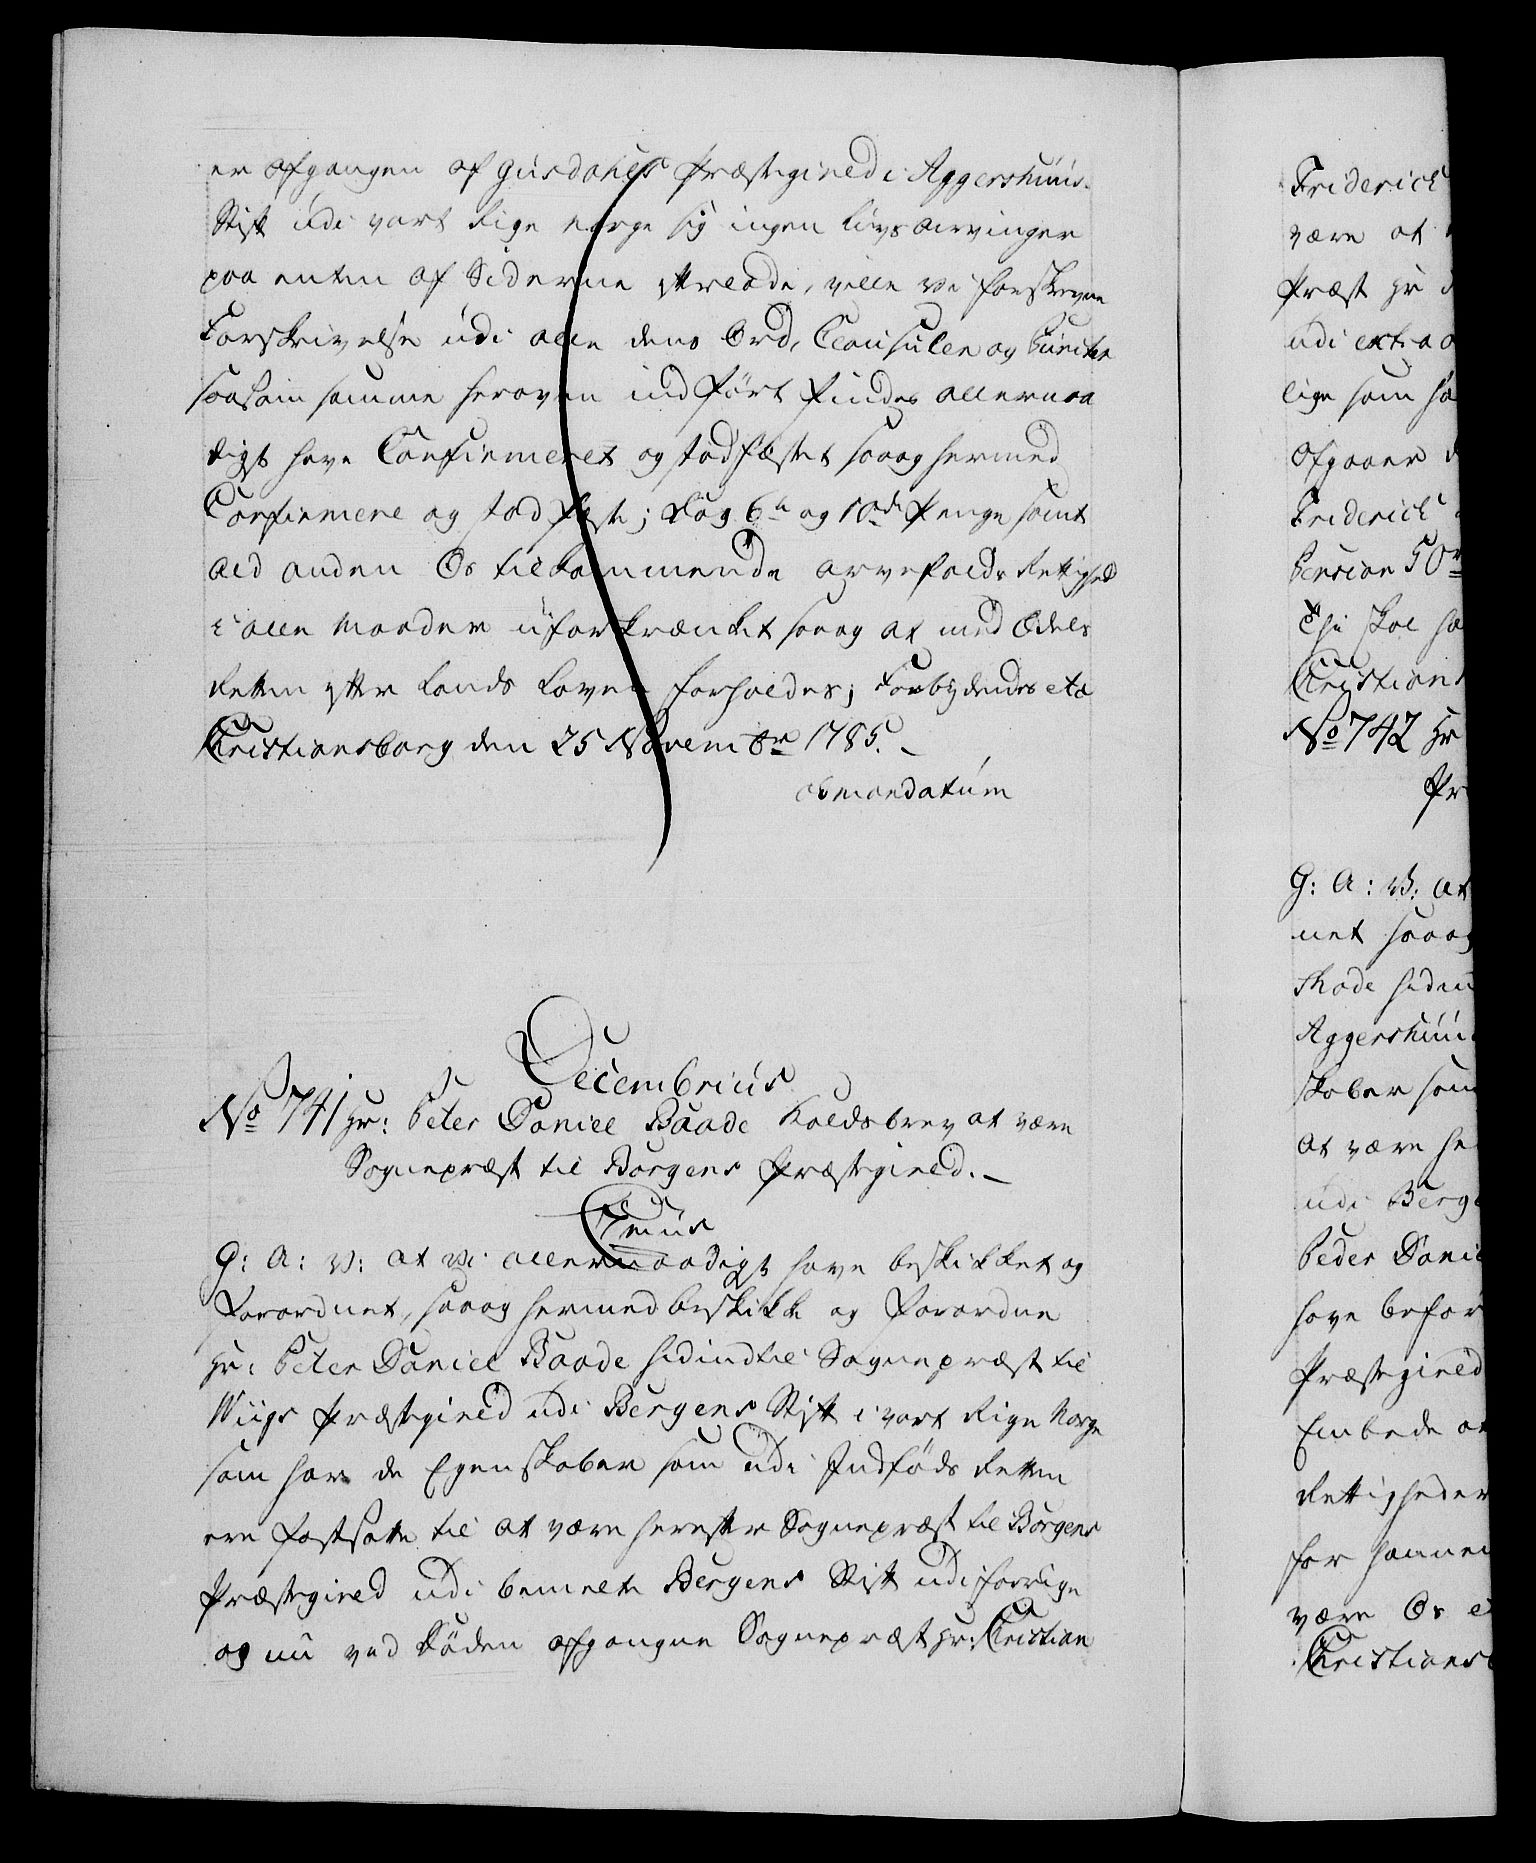 er afgangen af Gusdahls Præstegield i Aggershuus
Stift udi vort Rige Norge sig ingen Livs Arvinger
paa enten af Siderne efterlade, ville vi forskrevne
Forskrivelse udi alle dens Ord, Clausuler og Puncter
saasom samme heroven indført findes allernaa
digst have Confirmeret og stadfæstet saa og hermed
Confirmere og stadfæste; Dog 6te og 10de Penge samt
ald anden Os tilkommende Arvefalds Rettighed
i alle Maader uforkrænket saa og at med Odels
Retten efter Lands Loven forholdes; Forbydendes etc
Christiansborg den 25 Novembr 1785.
ob mandatum
Decembrius
No 741 Hr: Peter Daniel Baade Kaldsbrev at være
Sognepræst til Borgens Præstegield.
1mus
G: A: V: at Vi allernaadigst have beskikket og
Forordnet, saa og hermed beskikke og Forordne
Hr: Peter Daniel Baade hidindtil Sognepræst til
Wiigs Præstegield udi Bergens Stift i vort Rige Norge
som har de Egenskaber som udi Indføds Retten
ere fastsatte til at være herefter Sognepræst til Borgens
Præstegield udi bemelte Bergens Stift udi forrige
og nu ved Døden afgangne Sognepræst Hr: Christian
Friderich
være at
Præst Hr
udi extra o
lige som ha
Afgaaer d
Friderich
Pension 50r
Thi skal ha
Christians
No 742 Hr
Pr
G: A: V: at
net saa og
Rhode hidin
Aggershuu
skaber som
at være he
udi Berge
Peder Danie
have befor
Præstegield
Embede o
Rettigheder
for hannem
være Os e
Christiansb